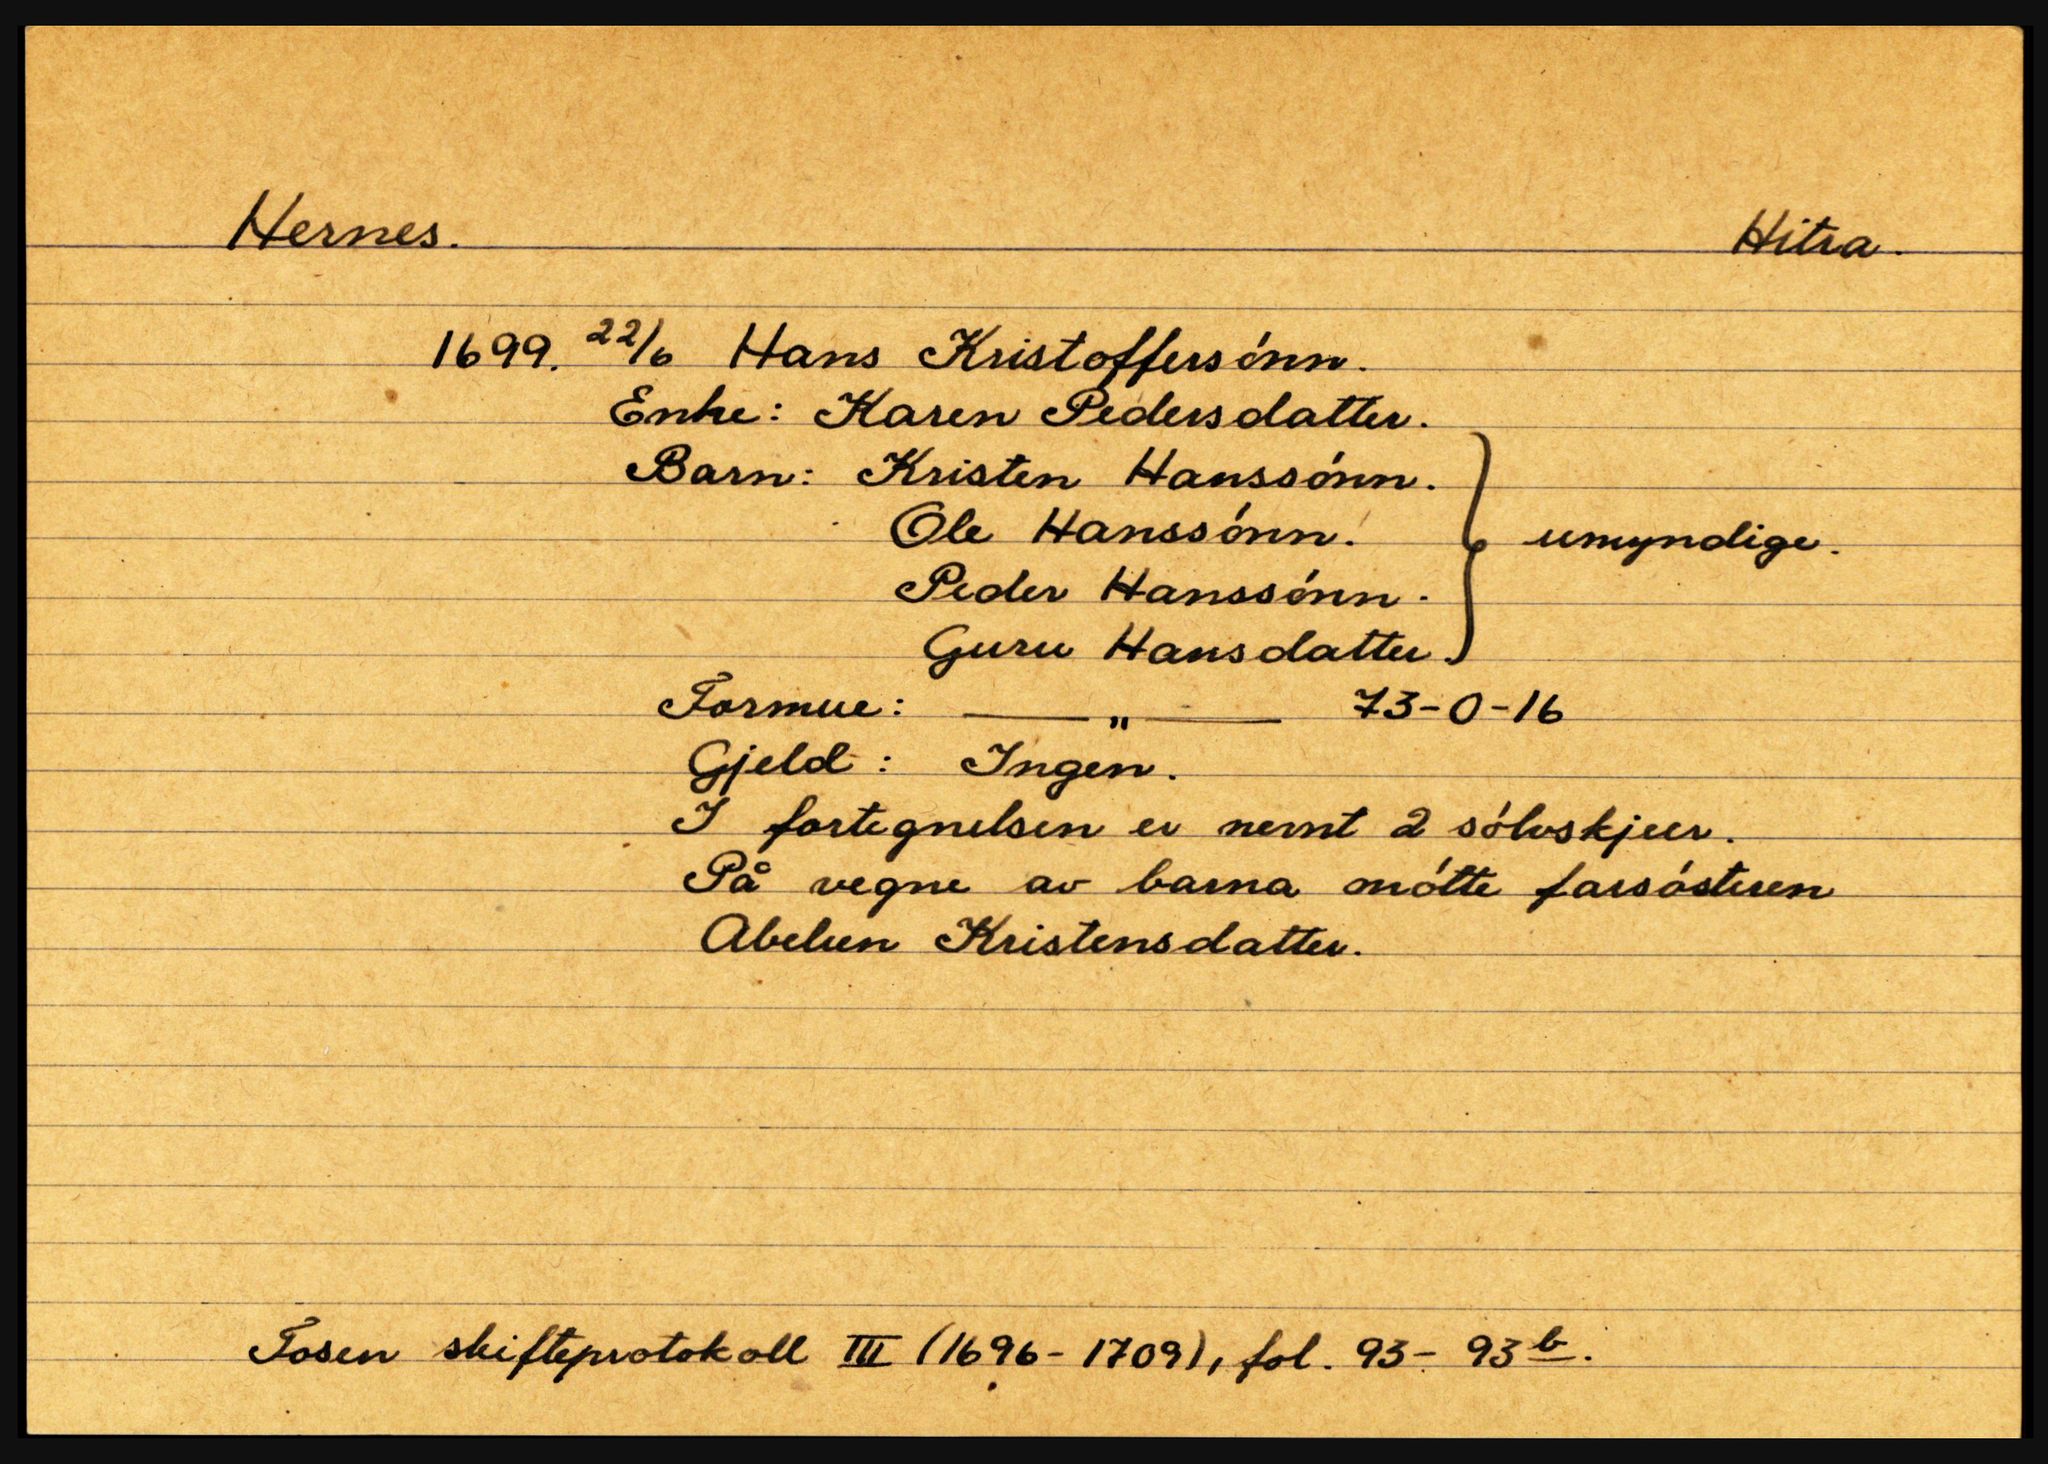 Hernes. Hitra.
1699. 22/6 Hans Kristoffersónn.
Enke: Karen Pedersdatter.
Barn: Kristen Hanssónn.
Ole Hanssónn.
umyndige.
Peder Hanssónn.
Guru Hansdatter.
Formue: — " — 73-0-16
Gjeld: Ingen.
I fortegnelsen er nevnt 2 sólvskjeer.
På vegne av barna mótte farsósteren
Abelun Kristensdatter.
Fosen skifteprotokoll III (1696-1709), fol. 93-93b.